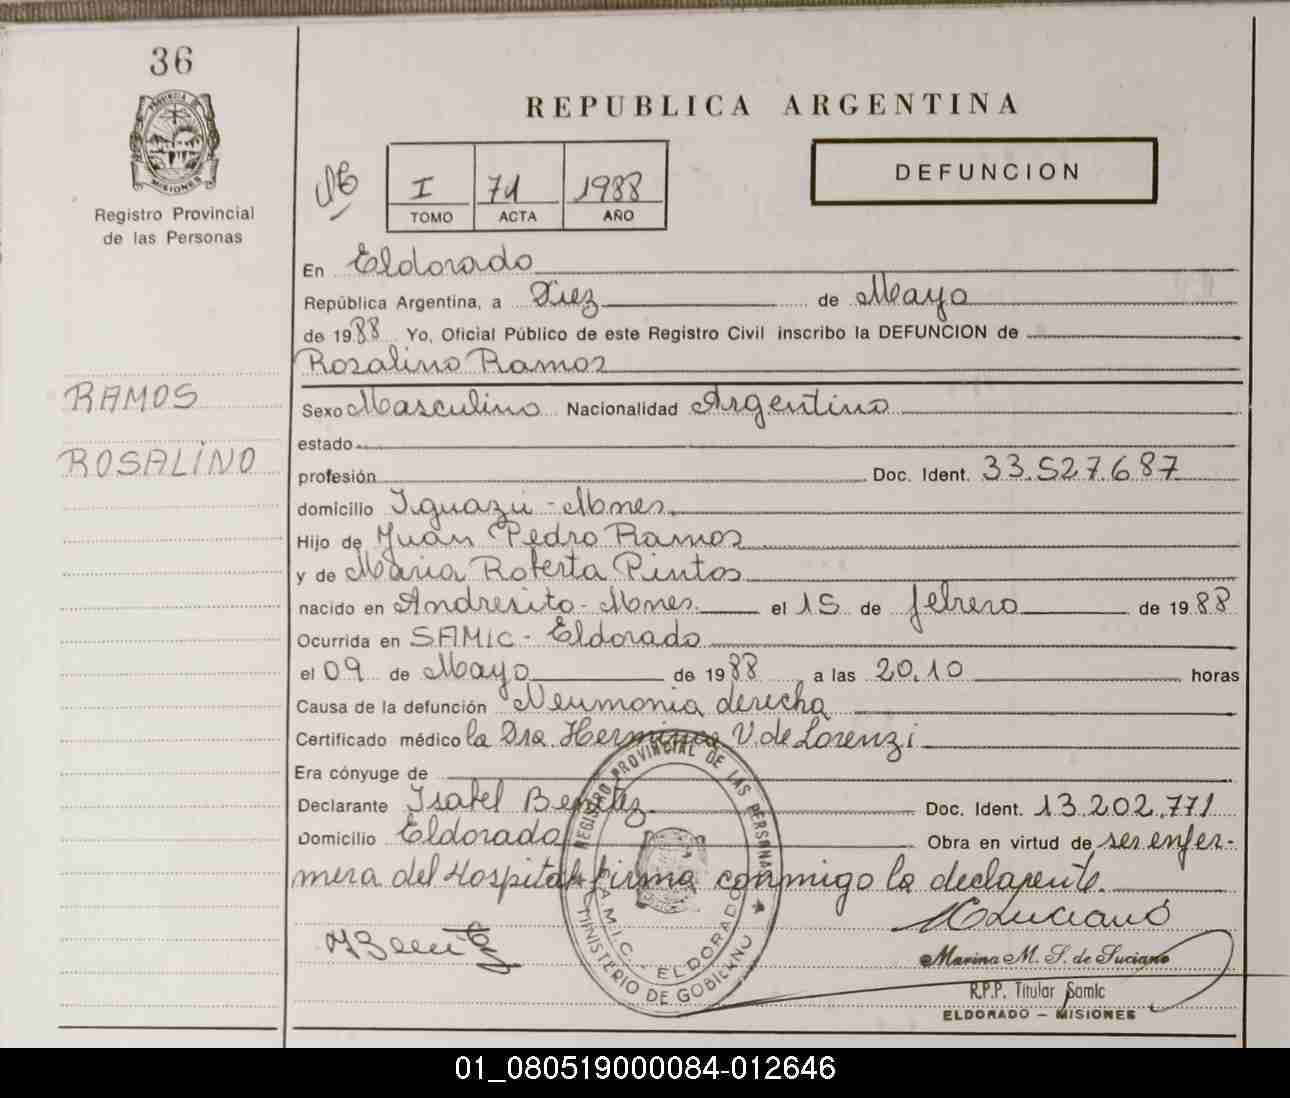 36
PROVINCIA DE
MISIONES
Registro Provincial
de las Personas
REPUBLICA ARGENTINA
DEFUNCION
I 71 1988
TOMO ACTA AÑO
En Eldorado
República Argentina, a Diez de Mayo
de 1988 Yo, Oficial Público de este Registro Civil inscribo la DEFUNCION de
Rosalino Ramos
RAMOS
ROSALINO
Sexo Masculino Nacionalidad Argentino
estado
profesión Doc. Ident. 33.527.687
domicilio Iguazú - Mnes.
Hijo de Juan Pedro Ramos
y de Maria Roberta Pintos
nacido en Andresito - Mnes. el 15 de febrero de 1988
Ocurrida en SAMIC - Eldorado
el 09 de Mayo de 1988 a las 20.10 horas
Causa de la defunción Neumonia derecha
Certificado médico la Dra. Herminia V. de Lorenzi
Era cónyuge de
Declarante Isabel Benitez Doc. Ident. 13.202.771
Domicilio Eldorado Obra en virtud de ser enfer-
mera del Hospital firma conmigo la declarante.
REGISTRO PROVINCIAL DE LAS PERSONAS
S.A.M.I.C. - ELDORADO
MINISTERIO DE GOBIERNO
Marina M. S. de Suciano
R.P.P. Titular Samic
ELDORADO - MISIONES
01_080519000084-012646